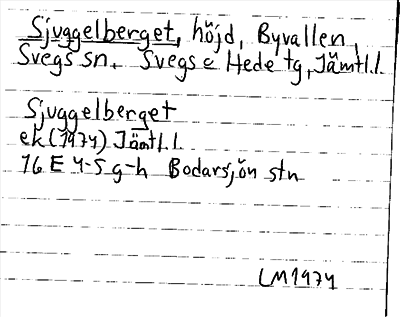 Sjuggelberget, höjd, Byvallen,
Svegs sn. Svegs o Hede tg, Jämtl.l.
Sjuggelberget
ek (1974) Jämtl.l.
16 E 4-5 g-h Bodarsjön stn
LM 1974